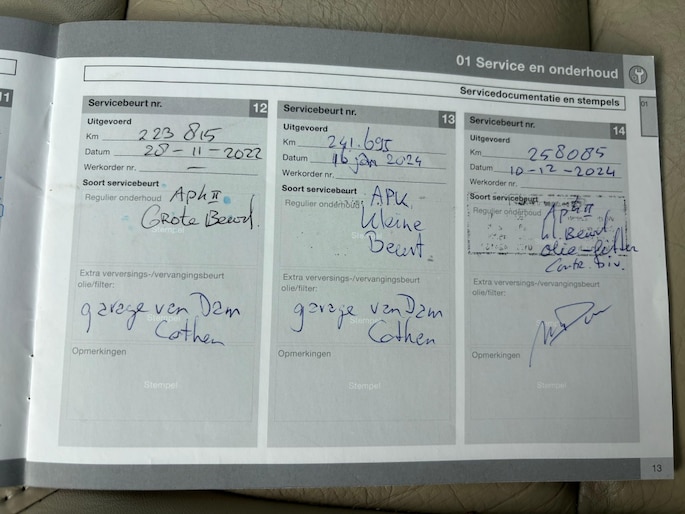 11
01 Service en onderhoud
Servicedocumentatie en stempels
01
Servicebeurt nr. 12
Uitgevoerd
Km 223 815
Datum 28-11-2022
Werkorder nr. —
Soort servicebeurt
Regulier onderhoud Apk II
Grote Beurt.
Stempel
Extra verversings-/vervangingsbeurt
olie/filter:
garage van Dam
Cothen
Stempel
Opmerkingen
Stempel
Servicebeurt nr. 13
Uitgevoerd
Km 241.695
Datum 16 jan 2024
Werkorder nr.
Soort servicebeurt
Regulier onderhoud APK
kleine
Beurt.
Extra verversings-/vervangingsbeurt
olie/filter:
garage van Dam
Cothen
Opmerkingen
Stempel
Servicebeurt nr. 14
Uitgevoerd
Km 258085
Datum 10-12-2024
Werkorder nr.
Soort servicebeurt
Regulier onderhoud Apk II
kl. Beurt
olie-filter
Extra verversings-/vervangingsbeurt
olie/filter:
Stempel
Opmerkingen
Stempel
13